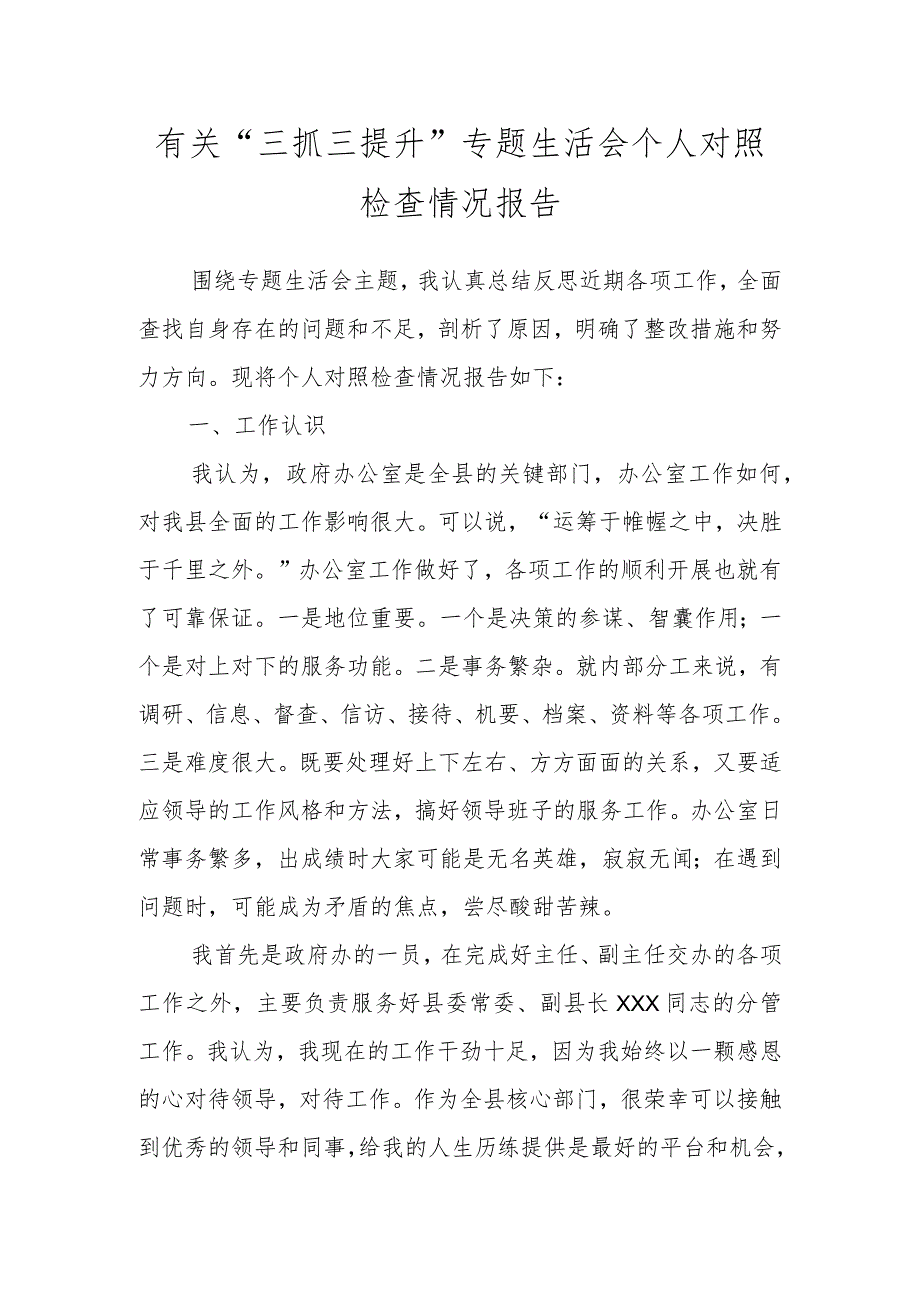 有关“三抓三提升”专题生活会个人对照
检查情况报告
围绕专题生活会主题，我认真总结反思近期各项工作，全面
查找自身存在的问题和不足，剖析了原因，明确了整改措施和努
力方向。现将个人对照检查情况报告如下：
一、工作认识
我认为，政府办公室是全县的关键部门，办公室工作如何，
对我县全面的工作影响很大。可以说，“运筹于帷幄之中，决胜
于千里之外。”办公室工作做好了，各项工作的顺利开展也就有
了可靠保证。一是地位重要。一个是决策的参谋、智囊作用；一
个是对上对下的服务功能。二是事务繁杂。就内部分工来说，有
调研、信息、督查、信访、接待、机要、档案、资料等各项工作。
三是难度很大。既要处理好上下左右、方方面面的关系，又要适
应领导的工作风格和方法，搞好领导班子的服务工作。办公室日
常事务繁多，出成绩时大家可能是无名英雄，寂寂无闻；在遇到
问题时，可能成为矛盾的焦点，尝尽酸甜苦辣。
我首先是政府办的一员，在完成好主任、副主任交办的各项
工作之外，主要负责服务好县委常委、副县长 XXX 同志的分管
工作。我认为，我现在的工作干劲十足，因为我始终以一颗感恩
的心对待领导，对待工作。作为全县核心部门，很荣幸可以接触
到优秀的领导和同事，给我的人生历练提供是最好的平台和机会，